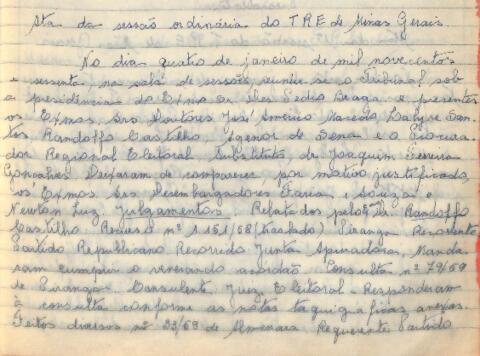 Ata da sessão ordinária do TRE de Minas Gerais.
No dia quatro de janeiro de mil novecentos
e sessenta, na sala de sessões, reuniu-se o Tribunal sob
a presidencia do Exmo Sr Des Pedro Braga e presentes
os Exmos. Srs Doutores José Americo Macedo, Dalmo San-
tos Randolfo Castilho, Agenor de Sena e o Procura
dor Regional Eleitoral Substituto, dr Joaquim Ferreira
Gonçalves Deixaram de comparecer por motivo justificado,
os Exmos Srs Desembargadores Faria e Souza e
Newton Luz. Julgamentos. Relatados pelo Dr Randolfo
Castilho Recurso nº 1151/58 (traslado) Piranga Recorrente
Partido Republicano Recorrido Junta Apuradora, Manda-
ram cumprir o venerando acordão Consulta nº 79/59
de Piranga Consulente Juiz Eleitoral - Responderam
à consulta conforme as notas taquigráficas anexas.
Feitos diversos nº 23/59 de Almenara Requerentes Partido